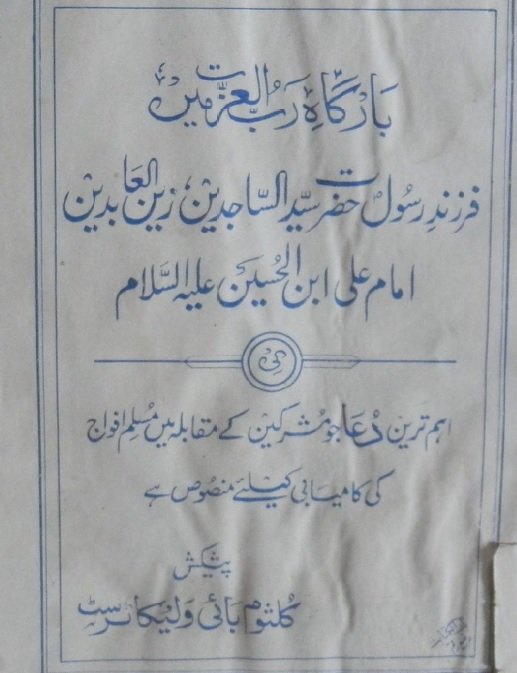 بارگاہِ رَبُّ العزّت میں
فرزندِ رسولؐ حضرت سیّد السّاجدین، زین العابدین
امام علی ابن الحسین علیہ السّلام
کی
اہم ترین دُعا جو مشرکین کے مقابلہ میں مُسلم افواج
کی کامیابی کیلئے منصوص ہے
پیشکش
کلثوم بائی ولیکا ٹرسٹ